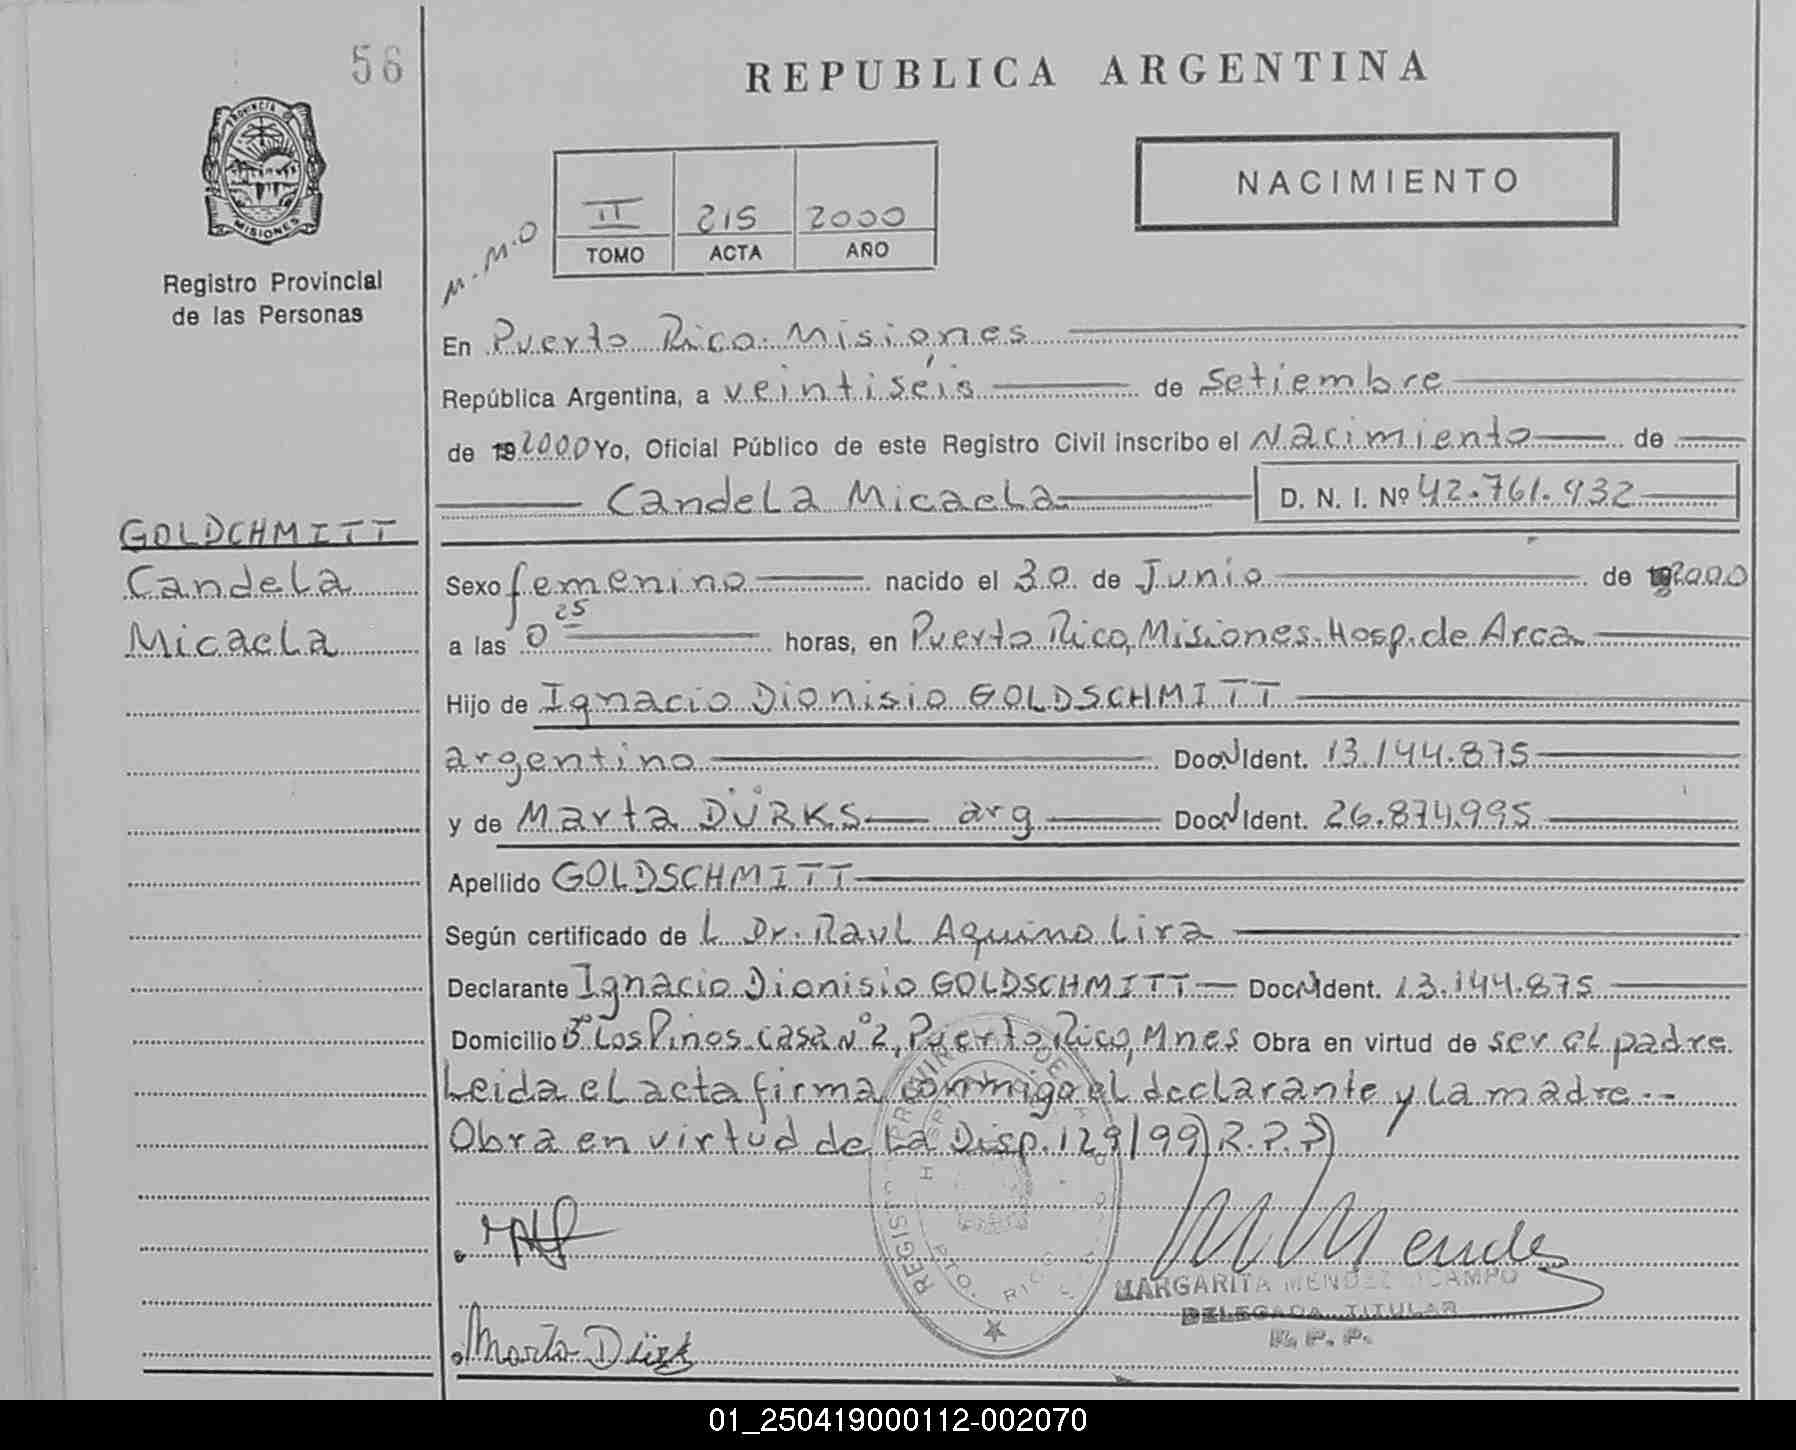 56
REPUBLICA ARGENTINA
PROVINCIA DE
MISIONES
NACIMIENTO
M.M.O
II 215 2000
TOMO ACTA AÑO
Registro Provincial
de las Personas
En Puerto Rico Misiones
República Argentina, a veintiséis de Setiembre
de 19 2000 Yo, Oficial Público de este Registro Civil inscribo el Nacimiento de
Candela Micaela D. N. I. Nº 42.761.932
GOLDCHMITT
Candela
Micaela
Sexo femenino nacido el 30 de Junio de 19 2000
a las 0 25 horas, en Puerto Rico, Misiones. Hosp. de Area
Hijo de Ignacio Dionisio GOLDSCHMITT
argentino Doc. N Ident. 13.144.875
y de Marta DÜRKS arg Doc. N Ident. 26.874.995
Apellido GOLDSCHMITT
Según certificado de L Dr. Raul Aquino Lira
Declarante Ignacio Dionisio GOLDSCHMITT Doc. N Ident. 13.144.875
Domicilio Bº Los Pinos Casa Nº 2, Puerto Rico, Mnes Obra en virtud de ser el padre.
Leida el acta firma conmigo el declarante y la madre.--
Obra en virtud de la Disp. 129/99) R.P.P)
M Mendez
MARGARITA MENDEZ OCAMPO
DELEGADA TITULAR
R. P. P.
Marta Dürks
01_250419000112-002070